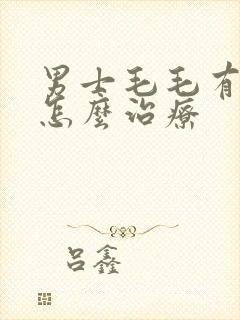 男士毛毛有
怎麼治療
吕鑫